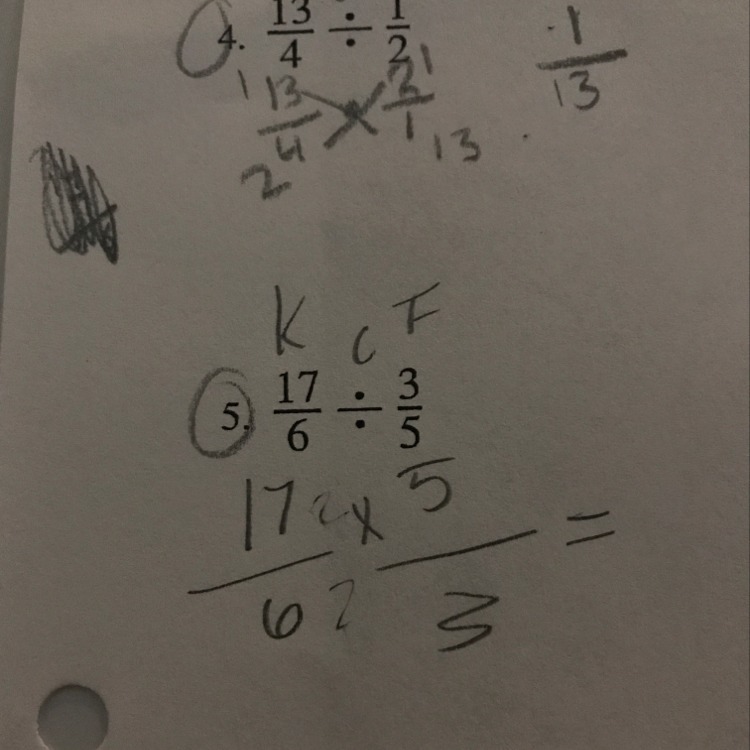 4. 13/4 ÷ 1/2
1 13/4 × 2/1 1
2 13
1/13
K C F
5. 17/6 ÷ 3/5
17/6 × 5/3 =